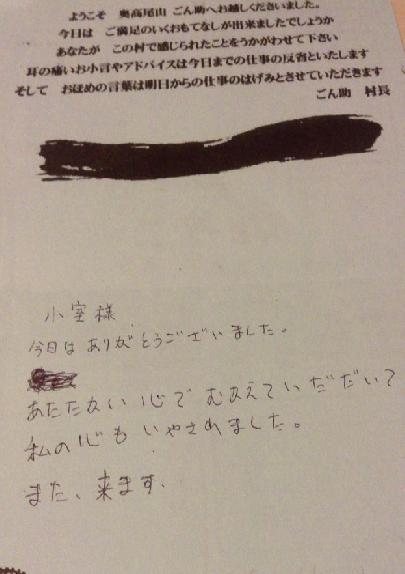 ようこそ 奥高尾山 ごん助へお越しくださいました。
今日は ご満足のいくおもてなしが出来ましたでしょうか
あなたが この村で感じられたことをうかがわせて下さい
耳の痛いお小言やアドバイスは今日までの仕事の反省といたします
そして おほめの言葉は明日からの仕事のはげみとさせていただきます
ごん助 村長
小室様
今日はありがとうございました。
あたたかい心でむかえていただいて
私の心もいやされました。
また、来ます。